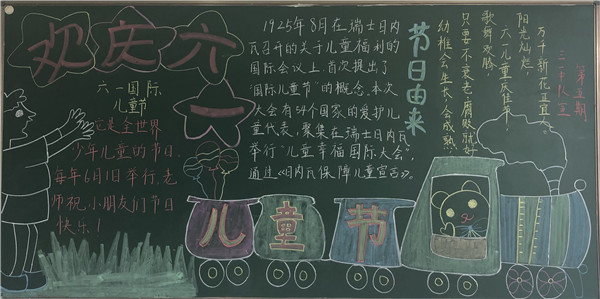 欢庆六
一
六一国际
儿童节
它是全世界
少年儿童的节日,
每年6月1日举行,老
师祝小朋友们节日
快乐!
1925年8月在瑞士日内
瓦召开的关于儿童福利的
国际会议上,首次提出了
"国际儿童节"的概念,本次
大会有54个国家的爱护儿
童代表,聚集在瑞士日内瓦
举行"儿童幸福国际大会",
通过《日内瓦保障儿童宣言》.
节日由来
第五期
中队宣
阳光灿烂,
六一儿童庆佳节!
歌舞欢腾,
只要不衰老、腐败就好
幼稚会生长,会成熟
儿童节